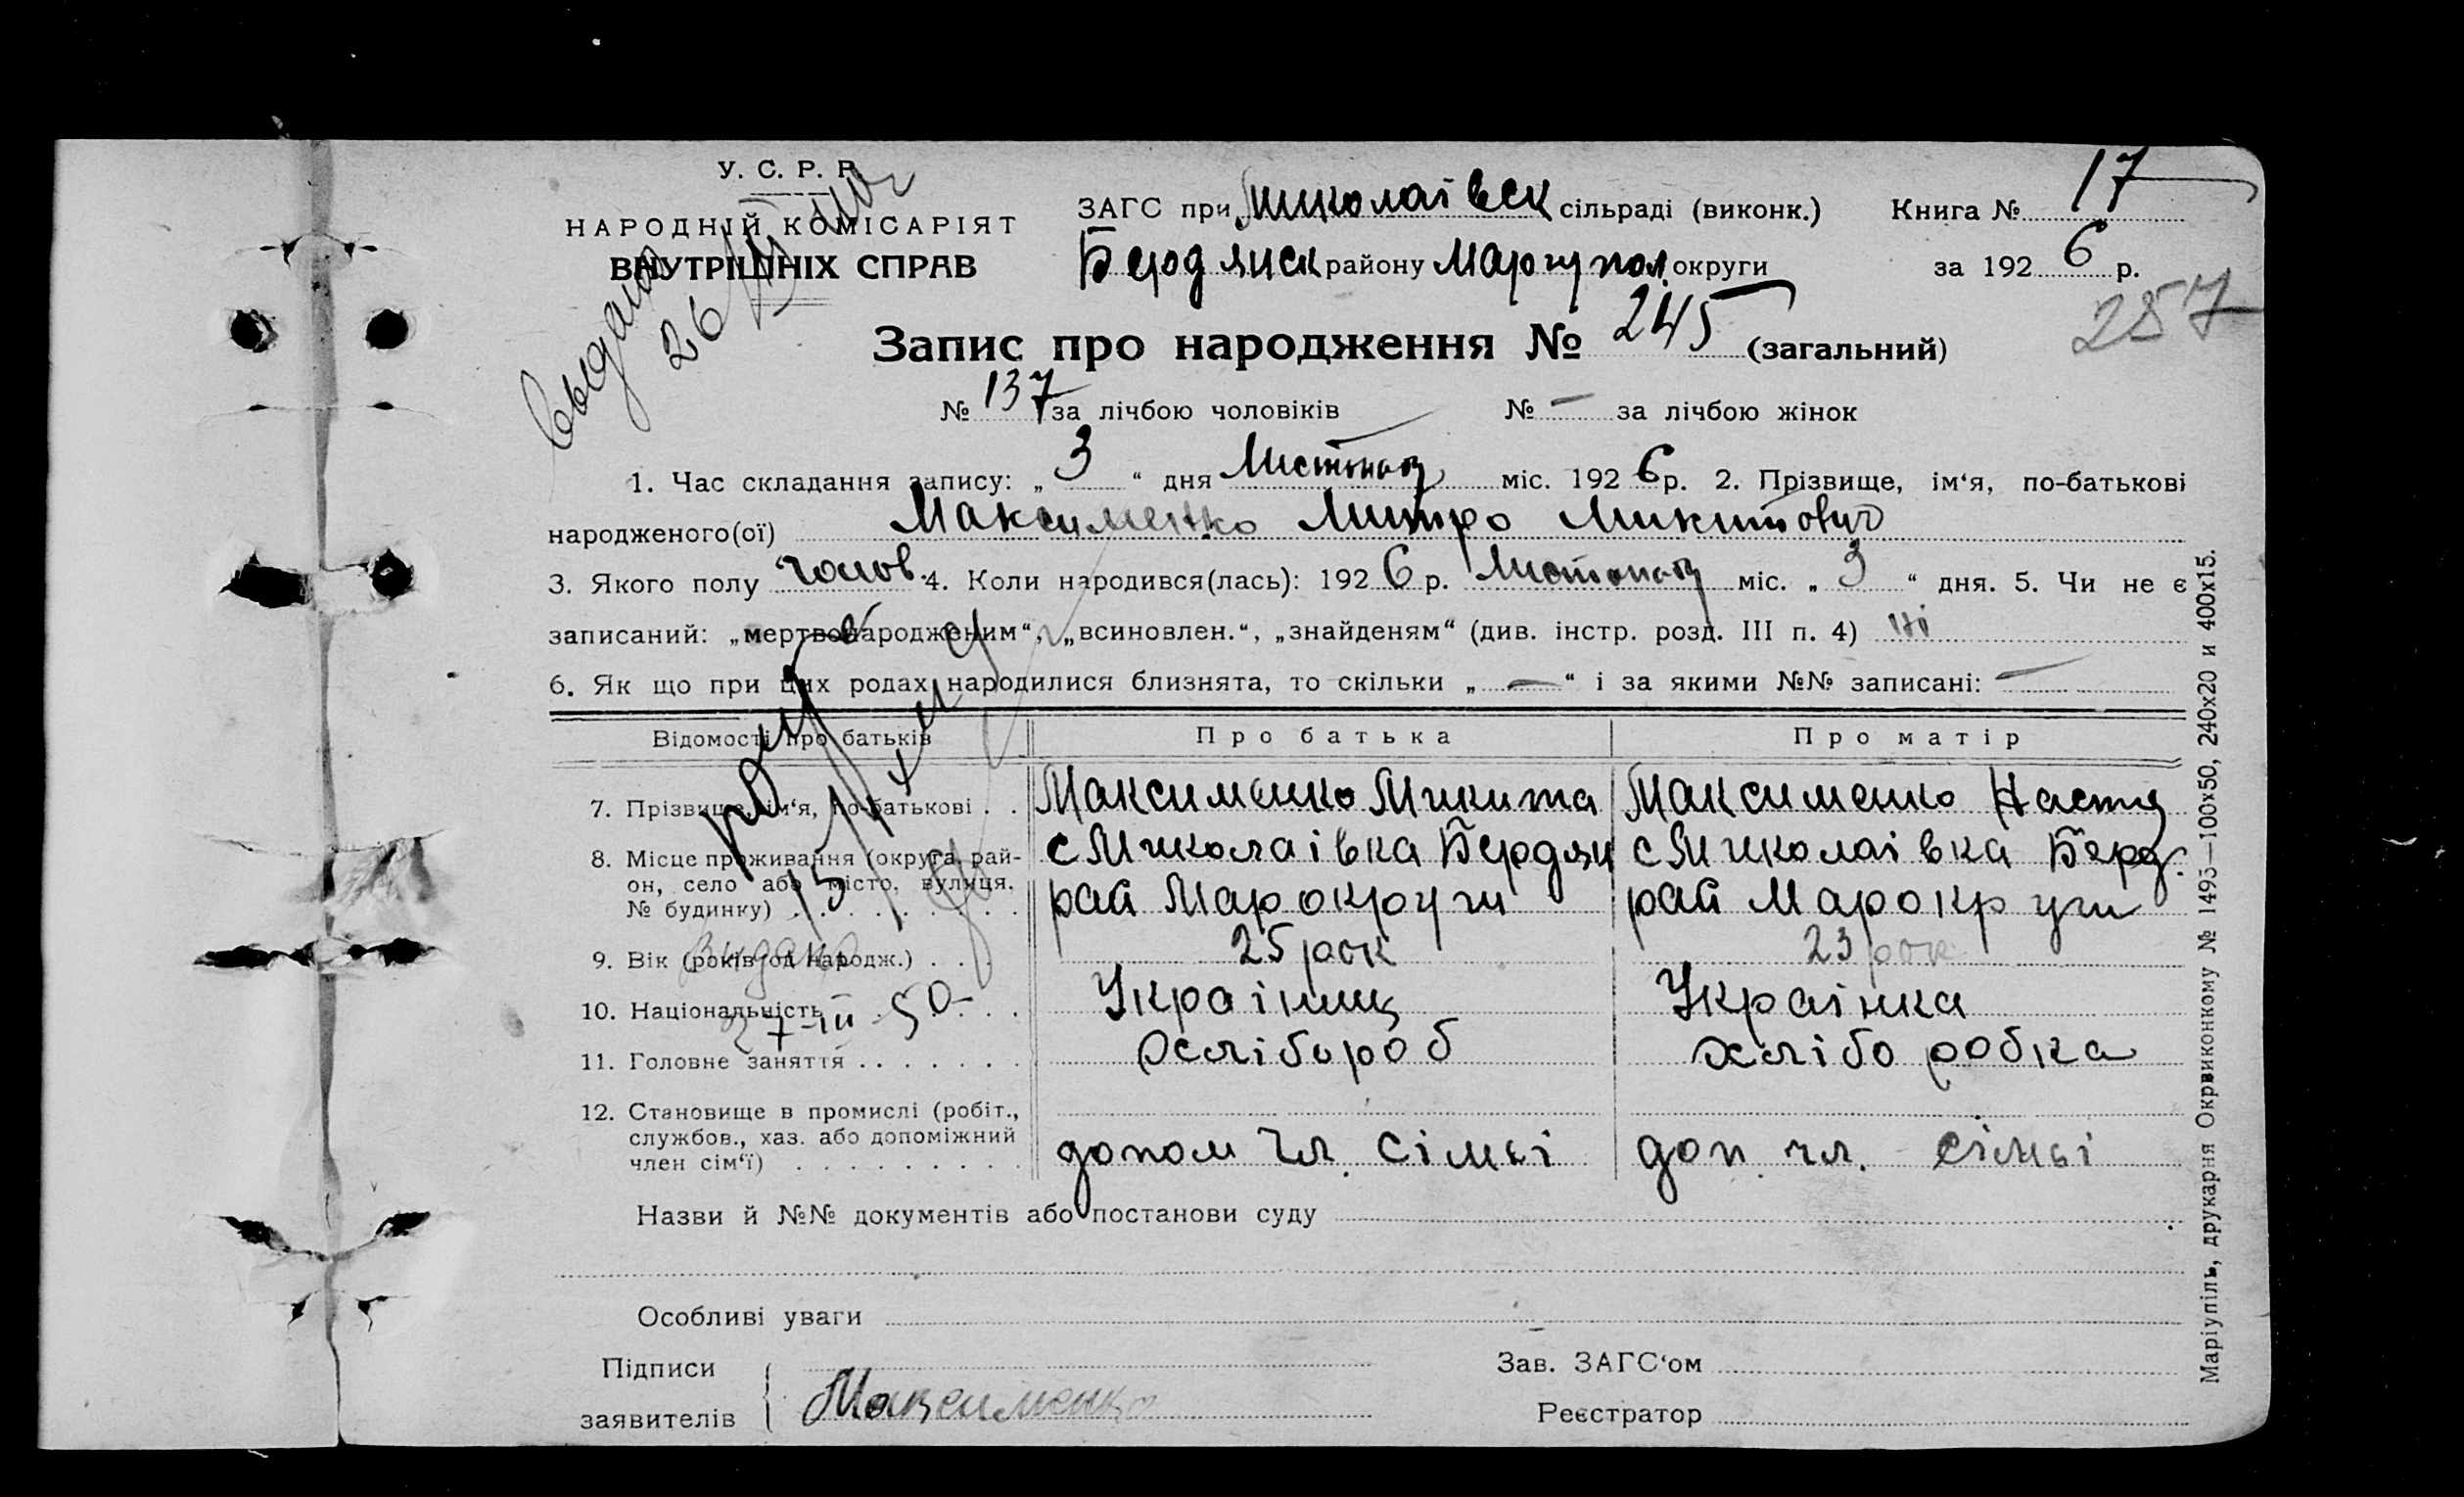 У. С. Р. Р.
НАРОДНІЙ КОМІСАРІЯТ
ВНУТРІШНІХ СПРАВ
ЗАГС при Миколаівск сільраді (виконк.) Книга № 17
Бердянск району Маріупол. округи за 1926 р.
257
Запис про народження № 245 (загальний)
№ 137 за лічбою чоловіків № — за лічбою жінок
1. Час складання запису: „ 3 “ дня Листопад міс. 1926 р. 2. Прізвище, ім‘я, по-батькові
народженого(ої) Максименко Митро Микитович
3. Якого полу чолов. 4. Коли народився(лась): 1926 р. Листопад міс. „ 3 “ дня. 5. Чи не є
записаний: „мертвонародженим“, „всиновлен.“, „знайденям“ (див. інстр. розд. III п. 4) ні
6. Як що при цих родах народилися близнята, то скільки „ — “ і за якими №№ записані: —
Відомості про батьків Про батька Про матір
7. Прізвище, ім‘я, по-батькові . . Максименко Микита Максименко Настя
8. Місце проживання (округа, рай- с Миколаівка Бердян с Миколаівка Берд.
он, село або місто, вулиця, рай Марокруги рай Марокруги
№ будинку) . . . . . . . . .
9. Вік (років од народж.) . . . 25 рок 23 рок
10. Національність . . . . Украінец Украінка
11. Головне заняття . . . . . . . Хлібороб хлібо робка
12. Становище в промислі (робіт.,
службов., хаз. або допоміжний
член сім‘ї) . . . . . . . . . допом чл. сімьі доп. чл. сімьі
Назви й №№ документів або постанови суду
Особливі уваги
Підписи
заявителів Максименко
Зав. ЗАГС‘ом
Реєстратор
Маріупіль, друкарня Окрвиконкому № 1495—100х50, 240х20 и 400х15.
выдано
26
видано
27-III-50-